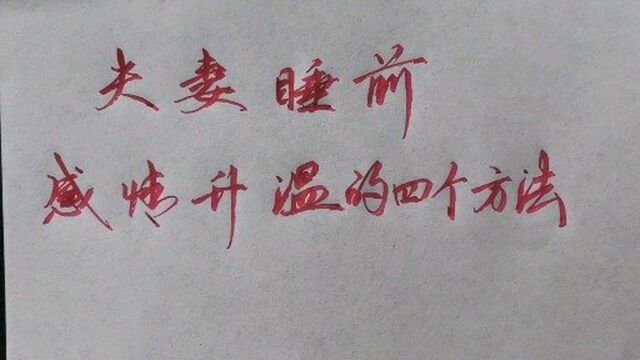 夫妻睡前
感情升温的四个方法